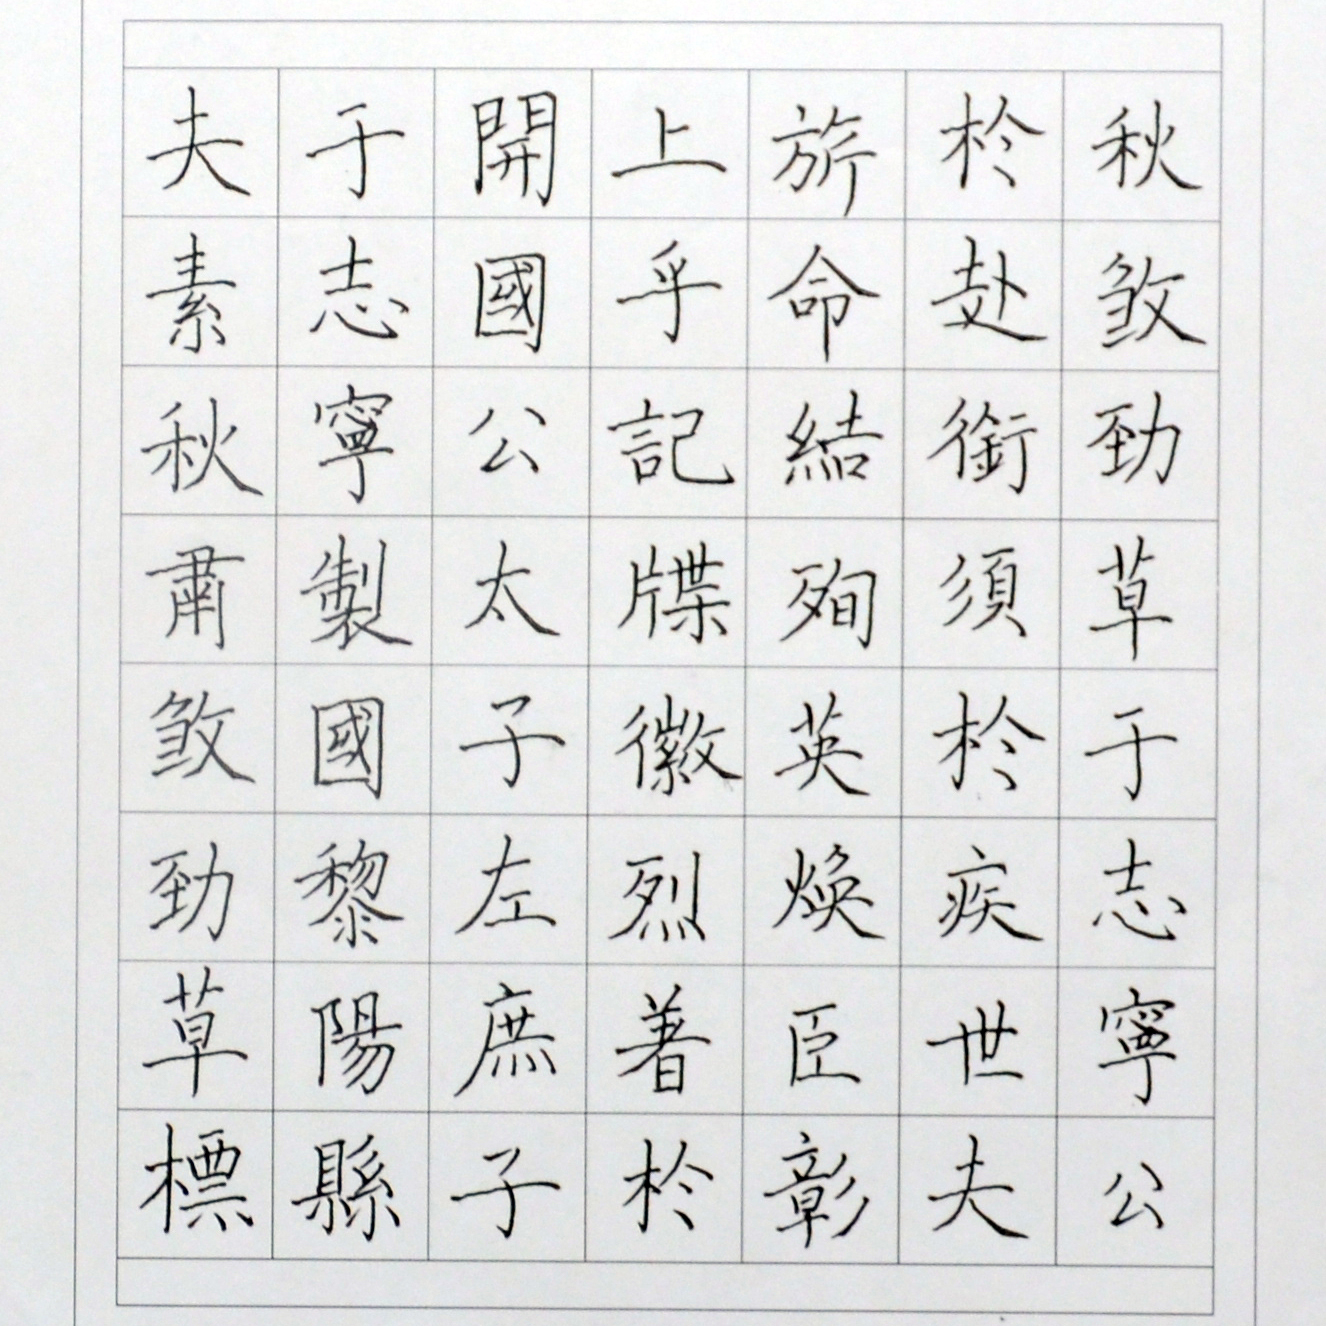 秋煞勁草于志寧公
於赴銜須於疾世夫
旂命結殉英煥臣彰
上乎記牒徽烈著於
開國公太子左庶子
于志寧製國黎陽縣
夫素秋肅煞勁草標